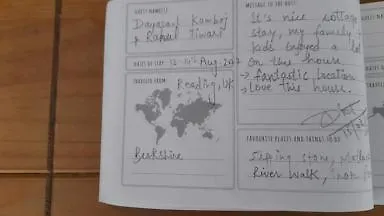 GUEST NAME(S)
Dayasagar Kamboj
& Rahul Tiwari
DATES OF STAY 12-14th Aug 20
TRAVELED FROM
Reading, UK
Berkshire
MESSAGE TO THE HOST
It's nice cottage
stay, my family &
kids enjoyed a lot
on the house.
→ fantastic location
→ Love this house.
FAVOURITE PLACES AND THINGS TO DO
stone,
River walk,